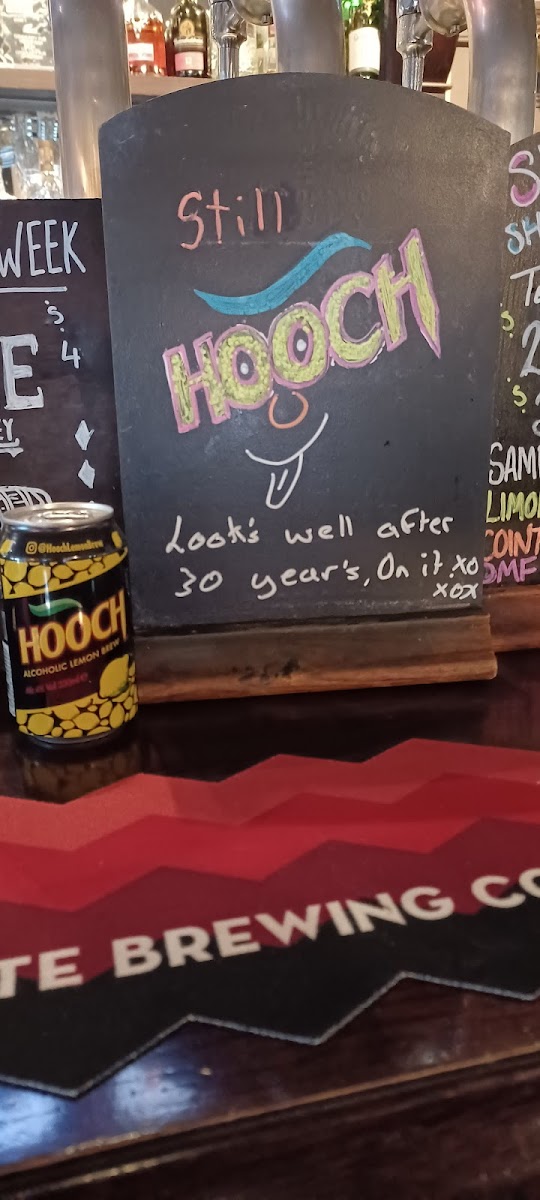 WEEK
's
4
E
EY
Still
HOOCH
Look's well after
30 year's, On it.xo
xox
@HoochLemonBrew
HOOCH
ALCOHOLIC LEMON BREW
S
SH
's
2
's
SAM
LIMO
COINT
OMF
TE BREWING CO